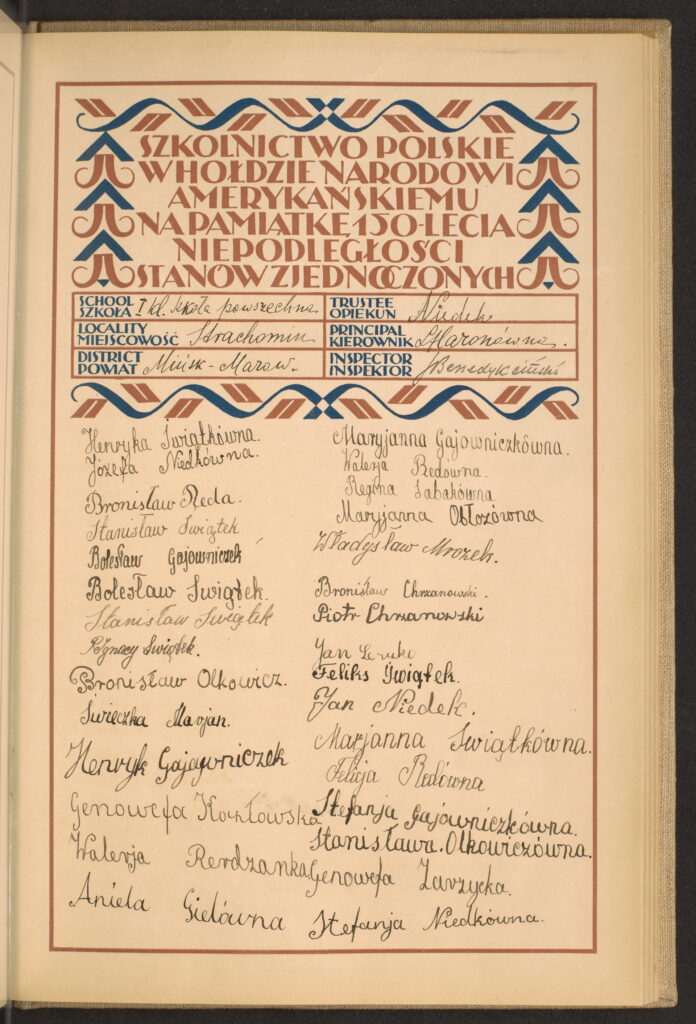 SZKOLNICTWO POLSKIE
W HOŁDZIE NARODOWI
AMERYKAŃSKIEMU
NA PAMIĄTKĘ 150-LECIA
NIEPODLEGŁOŚCI
STANÓW ZJEDNOCZONYCH
SCHOOL
SZKOŁA I kl. szkoła powszechna
TRUSTEE
OPIEKUN Niedek
LOCALITY
MIEJSCOWOŚĆ Strachomin
PRINCIPAL
KIEROWNIK
DISTRICT
POWIAT Mińsk-Mazow.
INSPECTOR
INSPEKTOR
Henryka Świątkówna.
Józefa Niedkówna.
Bronisław Reda.
Stanisław Świątek
Bolesław Gajowniczek
Bolesław Swiątek.
Stanisław Swiątek
Ignacy Swiątek.
Bronisław Olkowicz.
Świeczka Marjan.
Henryk Gajowniczek
Genowefa Kozłowska
Walerja Rerdzanka
Aniela Gielówna
Maryjanna Gajowniczkówna.
Walerja Redowna.
Regina Sabakówna
Maryjanna Obłozówna
Władysław Mrozek.
Bronisław Chrzanowski.
Piotr Chrzanowski
Jan
Feliks Świątek.
Jan Niedek.
Marjanna Swiątkówna.
Felicja Redówna
Stefanja Gajówniczkówna.
Stanisława Olkowiczówna.
Genowefa Zarzycka.
Stefanja Niedkówna.